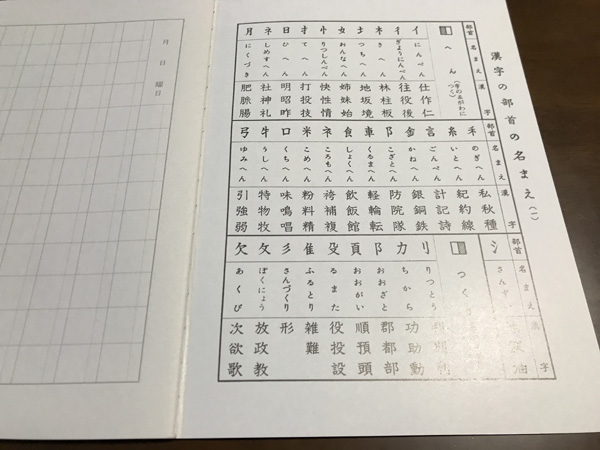 漢字の部首の名まえ(一)
部首 名まえ 漢字
へん
イ にんべん 仕作仁
彳 ぎょうにんべん 往役後
木 きへん 林柱板
土 つちへん 地坂境
女 おんなへん 姉妹始
忄 りっしんべん 快性情
扌 てへん 打投技
日 ひへん 明昭昨
ネ しめすへん 社神礼
月 にくづき 肥脈腸
部首 名まえ 漢字
禾 のぎへん 私秋種
糸 いとへん 紀約線
言 ごんべん 計記詩
金 かねへん 銀銅鉄
阝 こざとへん 防院隊
車 くるまへん 軽輪転
食 しょくへん 飲飯館
衤 ころもへん 袴補複
米 こめへん 粉料精
口 くちへん 味鳴唱
牛 うしへん 特物牧
弓 ゆみへん 引強弱
部首 名まえ 漢字
氵 油
つく
刂 りっとう
力 ちから 功助動
阝 おおざと 郡都部
頁 おおがい 順預頭
殳 るまた 役投設
隹 ふるとり 雑難
彡 さんづくり 形
攵 ぼくにょう 放政教
欠 あくび 次欲歌
月 日 曜日